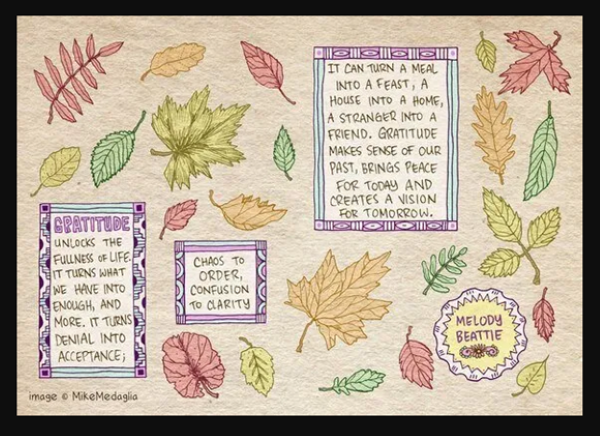 GRATITUDE
UNLOCKS THE
FULLNESS OF LIFE.
IT TURNS WHAT
WE HAVE INTO
ENOUGH, AND
MORE. IT TURNS
DENIAL INTO
ACCEPTANCE;
CHAOS TO
ORDER,
CONFUSION
TO CLARITY
IT CAN TURN A MEAL
INTO A FEAST, A
HOUSE INTO A HOME,
A STRANGER INTO A
FRIEND. GRATITUDE
MAKES SENSE OF OUR
PAST, BRINGS PEACE
FOR TODAY AND
CREATES A VISION
FOR TOMORROW.
MELODY
BEATTIE
image © MikeMedaglia